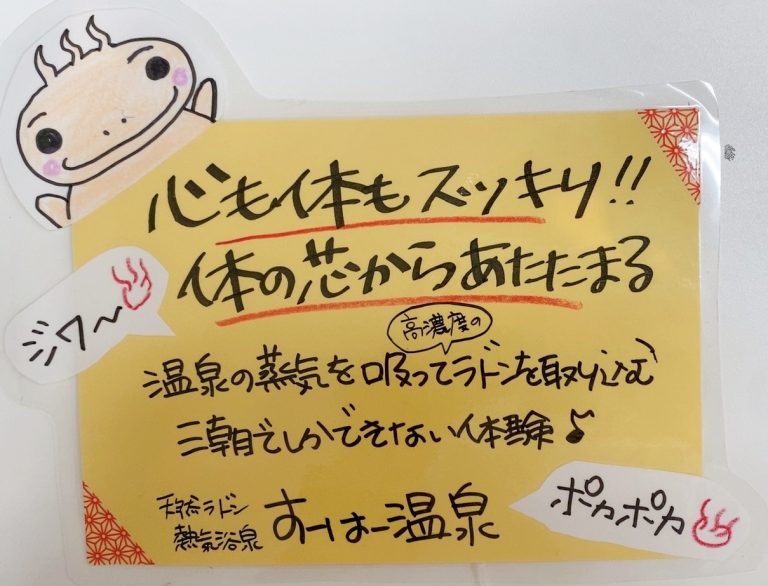 心も体もスッキリ!!
体の芯からあたたまる
ジワ〜
高濃度の
温泉の蒸気を吸ってラドンを取り込む
三朝でしかできない体験♪
天然ラドン
熱気浴泉
すーはー温泉
ポカポカ